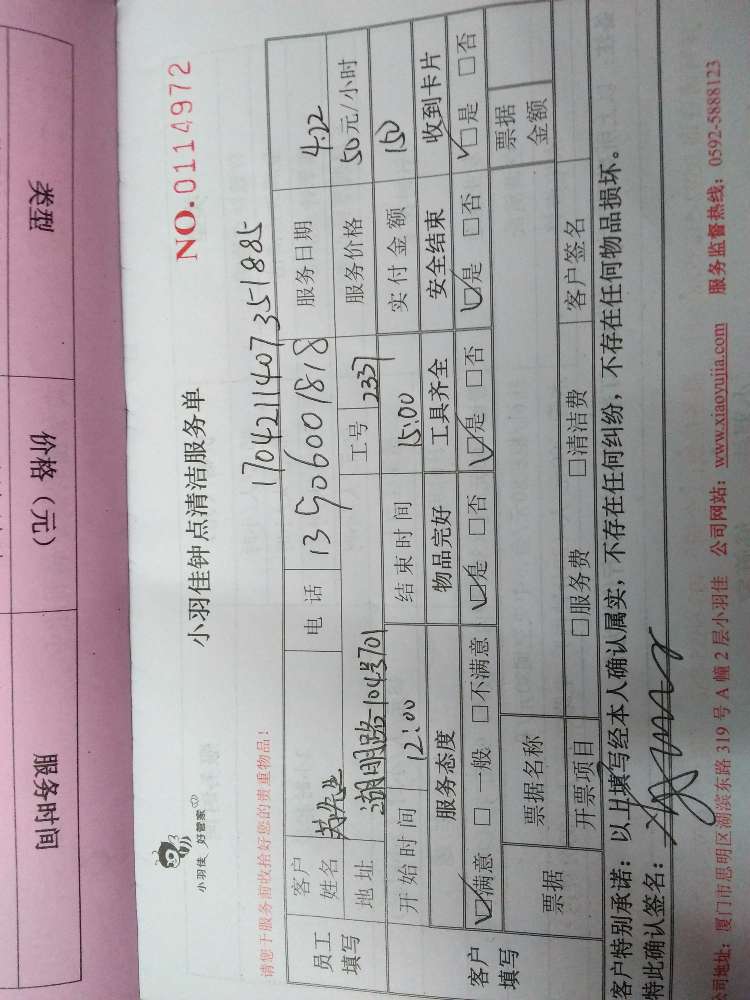 类型
价格（元）
服务时间
小羽佳 好管家
NO.0114972
小羽佳钟点清洁服务单
请您于服务前收拾好您的贵重物品！
170421140735 1885
员工填写
客户姓名
先生
电话
13506001818
服务日期
4.22
地址
湖明路-1043701
工号
2337
服务价格
50元/小时
开始时间
12:00
结束时间
15:00
实付金额
150
客户填写
服务态度
物品完好
工具齐全
安全结束
收到卡片
☑满意 □一般 □不满意
☑是 □否
☑是 □否
☑是 □否
☑是 □否
票据
票据名称
票据金额
开票项目
□服务费 □清洁费
客户签名
客户特别承诺：以上填写经本人确认属实，不存在任何纠纷，不存在任何物品损坏。
特此确认签名：
公司地址：厦门市思明区湖滨东路 319 号 A 幢 2 层小羽佳 公司网站：www.xiaoyujia.com 服务监督热线：0592-5888123